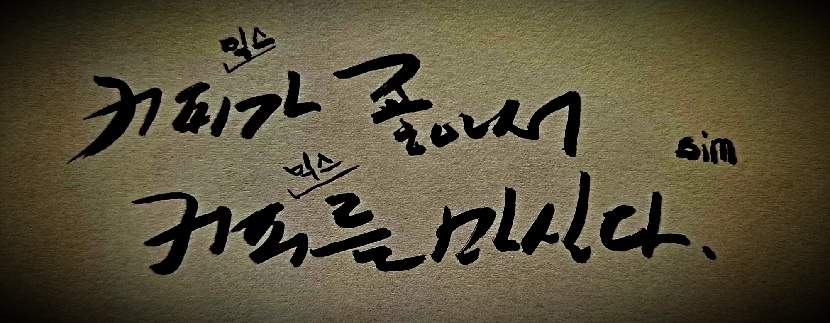 믹스
커피가 좋아서
sim
믹스
커피를 마신다.